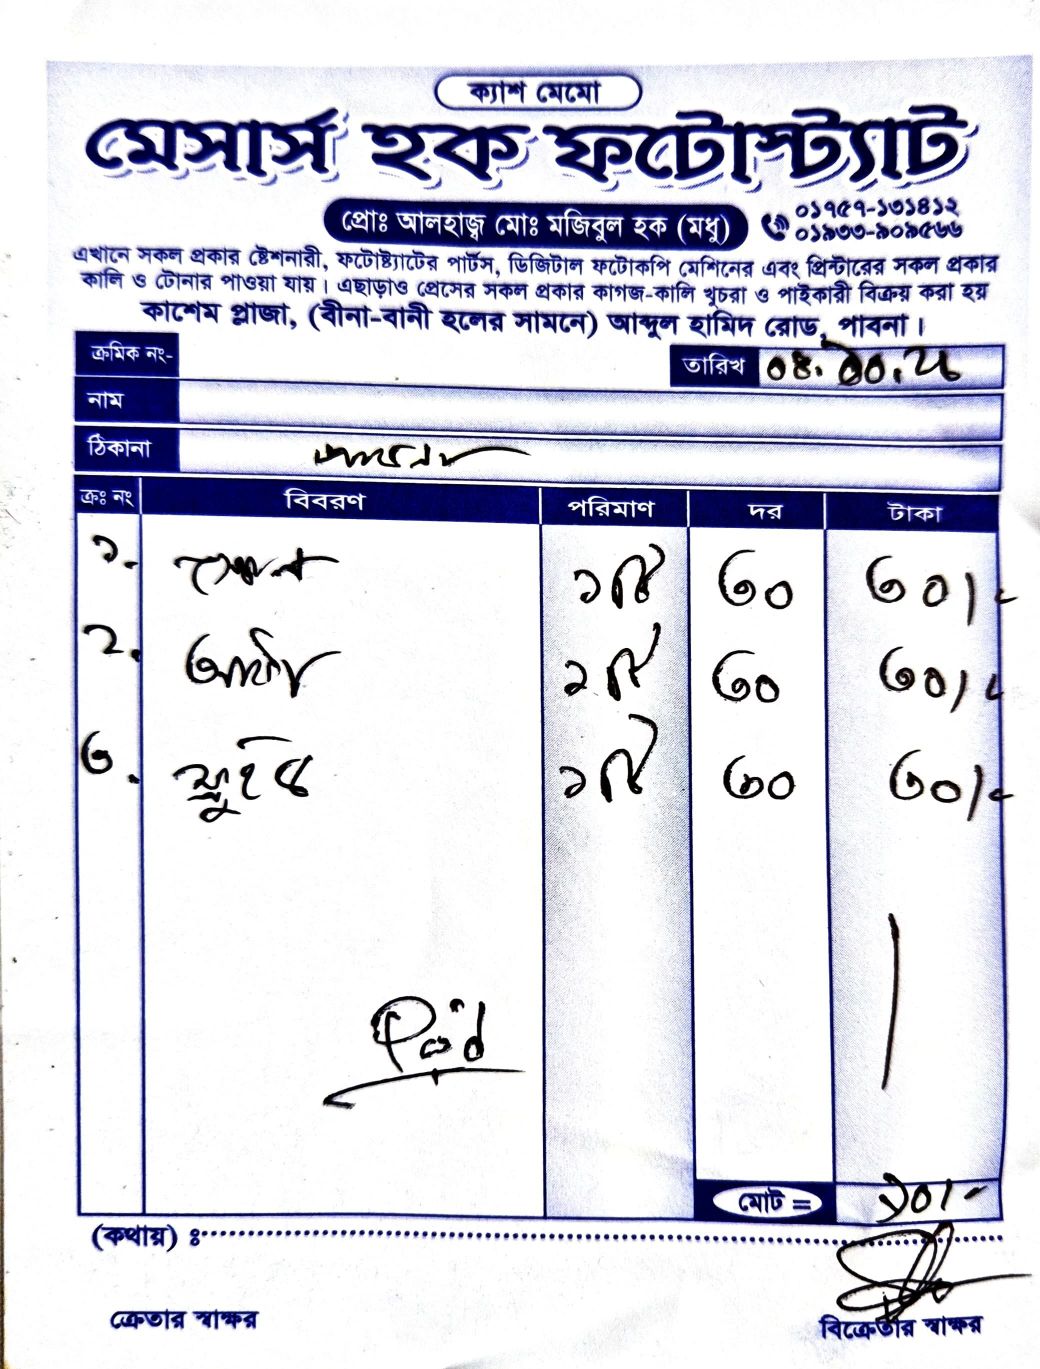 ক্যাশ মেমো
মেসার্স হক ফটোস্ট্যাট
প্রোঃ আলহাজ্ব মোঃ মজিবুল হক (মধু)
০১৭৫৭-১৩১৪১২
০১৯৩৩-৯০৯৫৬৬
এখানে সকল প্রকার ষ্টেশনারী, ফটোষ্ট্যাটের পার্টস, ডিজিটাল ফটোকপি মেশিনের এবং প্রিন্টারের সকল প্রকার
কালি ও টোনার পাওয়া যায়। এছাড়াও প্রেসের সকল প্রকার কাগজ-কালি খুচরা ও পাইকারী বিক্রয় করা হয়
কাশেম প্লাজা, (বীনা-বানী হলের সামনে) আব্দুল হামিদ রোড, পাবনা।
ক্রমিক নং-
তারিখ ০৪.১০.২৫
নাম
ঠিকানা পাবনা
ক্রঃ নং বিবরণ পরিমাণ দর টাকা
১. ১টি ৩০ ৩০/-
২. আঠা ১টি ৩০ ৩০/-
৩. ফ্লুইড ১টি ৩০ ৩০/-
Paid
মোট = ৯০/-
(কথায়) ঃ
ক্রেতার স্বাক্ষর
বিক্রেতার স্বাক্ষর